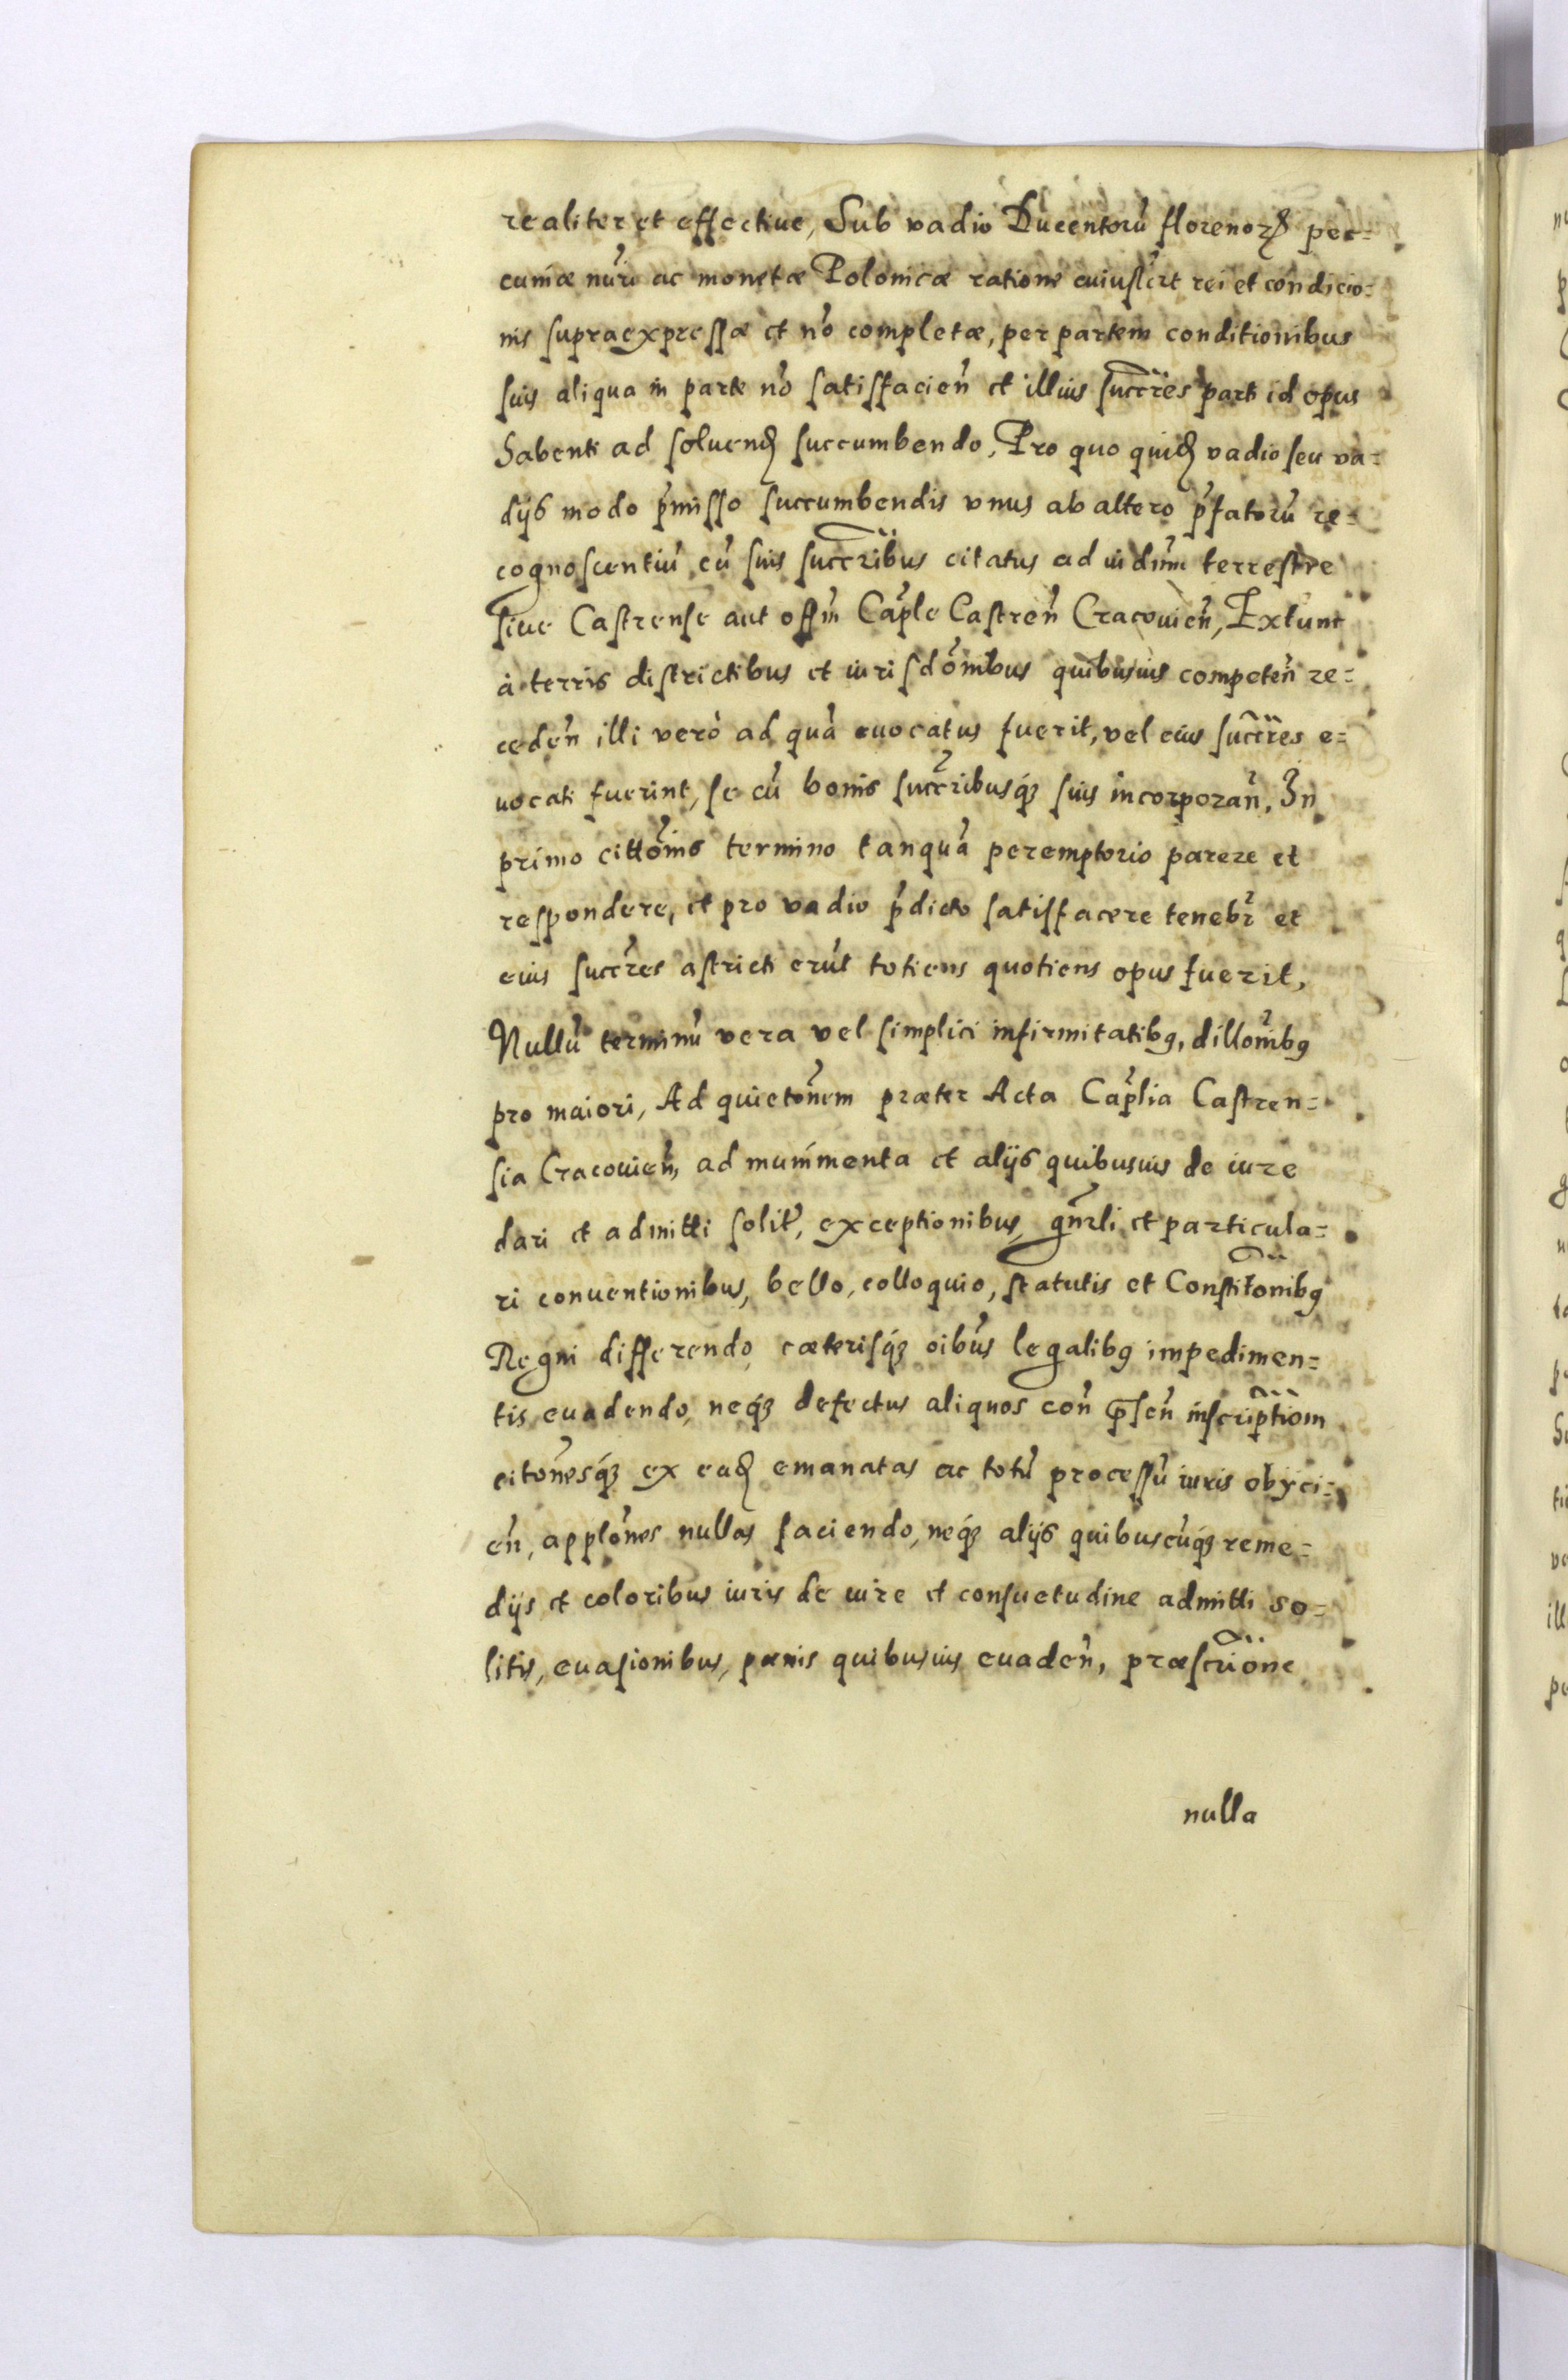 realiter et effectiue, Sub vadio Ducentorũ florenorꝝ pec=
cuniæ nũri ac monetæ Polonicæ ratione cuiuslt rei et condicio=
nis supraexpressæ et nõ completæ, per partem conditionibus
suis aliqua in parte nõ satisfacieñ et illius succr̃es parti id opus
habenti ad soluenꝺ succumbendo, Pro quo quiꝺ vadio seu va=
dijs modo p̃misso succumbendis vnus ab altero p̃fatorũ re=
cognoscentiũ cũ suis succr̃ibus citatus ad iudm̃ terrestre
siue Castrense aut offm̃ Cap̃le Castreñ Cracouieñ, Extunc
à terris districtibus et iurisdõnibus quibusuis competeñ re=
cedeñ illi verò ad quã euocatus fuerit, vel eius succr̃es e=
uocati fuerint, se cũ bonis succr̃ibusq́ꝫ suis incorporañ. In
primo cittõnis termino tanquã peremptorio parere et
respondere, et pro vadio p̃dicto satisfacere tenebr̃ et
eius succr̃es astricti erũt totiens quotiens opus fuerit,
Nullũ terminũ vera vel simplici infirmitatibꝰ, dillõnibꝰ
pro maiori, Ad quietõnem præter Acta Cap̃lia Castren=
sia Cracouieñ, ad munimenta et alijs quibusuis de iure
dari et admitti solit̃, exceptionibus, gñrli et particula=
ri conuentionibus, bello, colloquio, statutis et Constitõnibꝰ
Regni differendo, cæterisq́ꝫ oib̃us legalibꝰ impedimen=
tis euadendo, neq́ꝫ defectus aliquos coñ p̃señ inscriptiom̃
citõnesq́ꝫ ex eaꝺ emanatas ac totũ processũ iuris obijci=
eñ, applõnes nullas faciendo, neq́ꝫ alijs quibuscũq́ꝫ reme=
dijs et coloribus iuris de iure et consuetudine admitti so=
litis, euasionibus, pænis quibusuis euadeñ, præscriõne
nulla